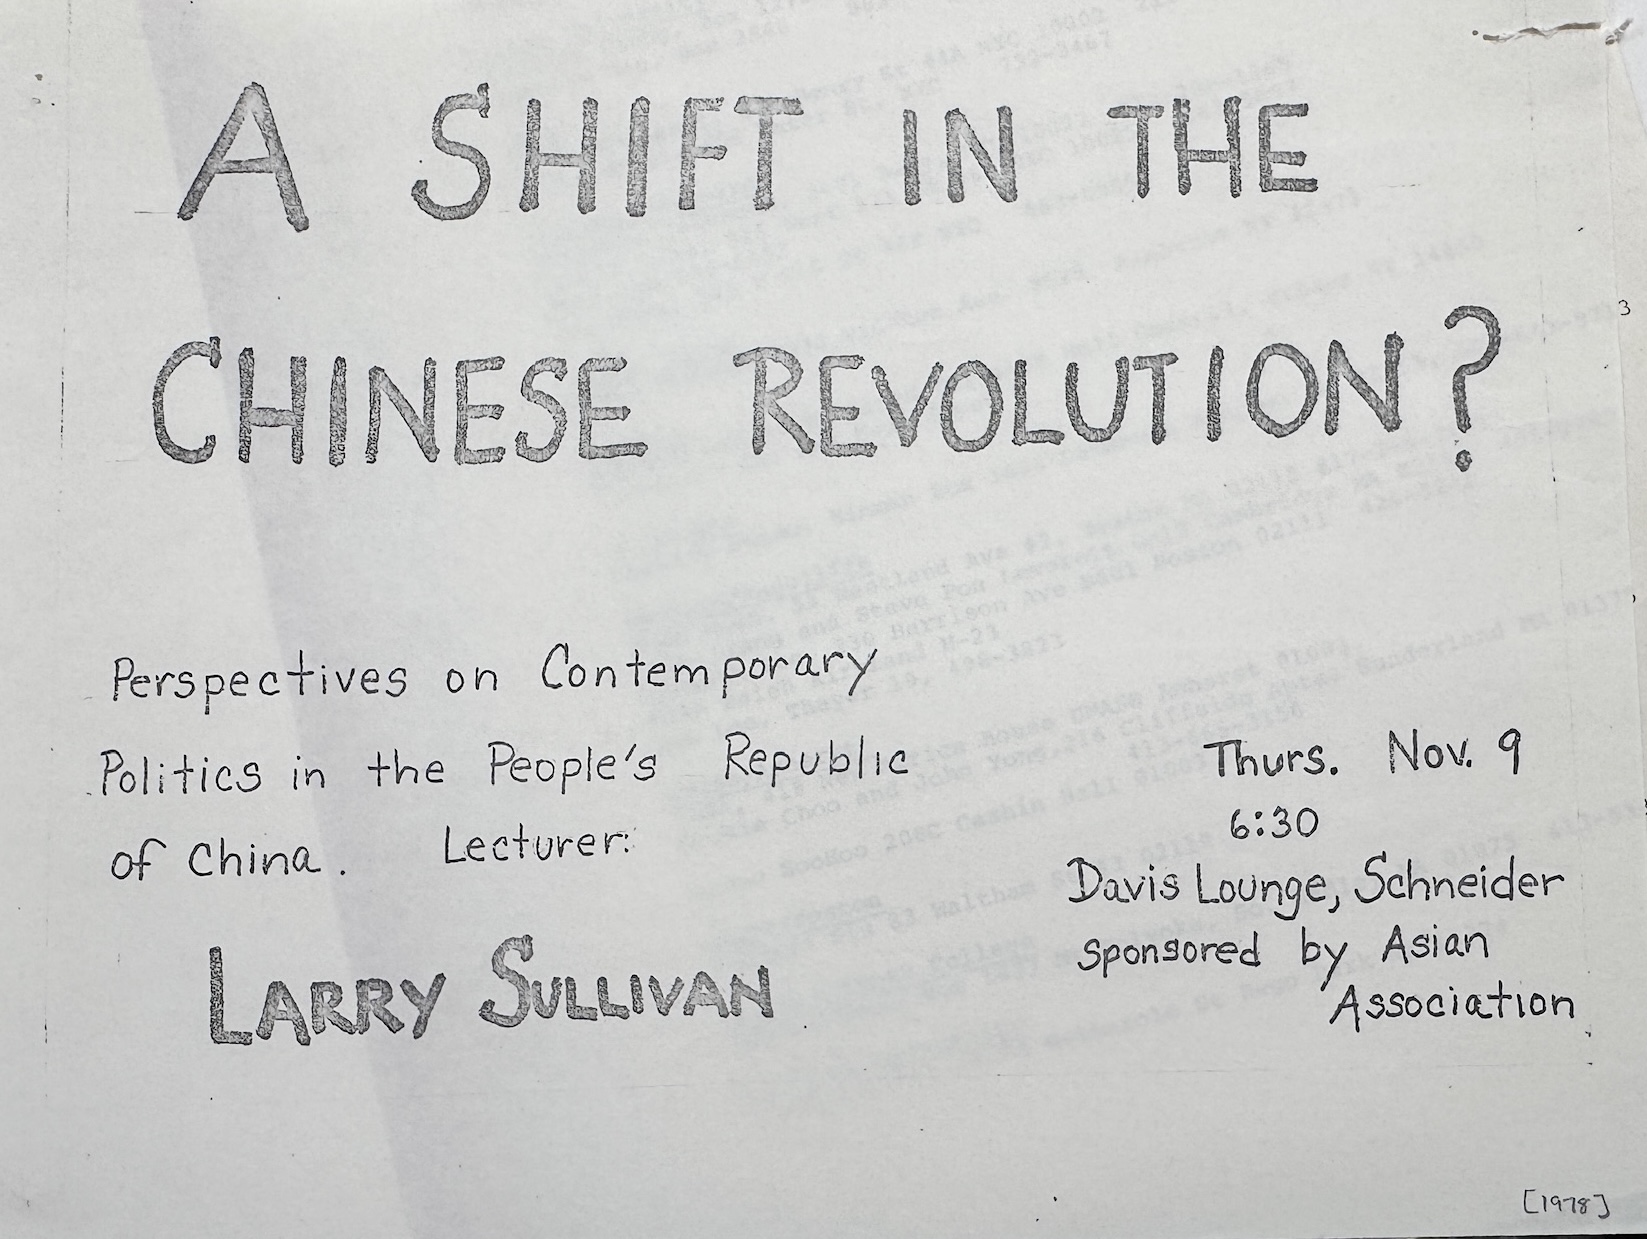 A SHIFT IN THE
CHINESE REVOLUTION?
Perspectives on Contemporary
Politics in the People's Republic
of China. Lecturer:
LARRY SULLIVAN
Thurs. Nov. 9
6:30
Davis Lounge, Schneider
sponsored by Asian
Association
[1978]
3